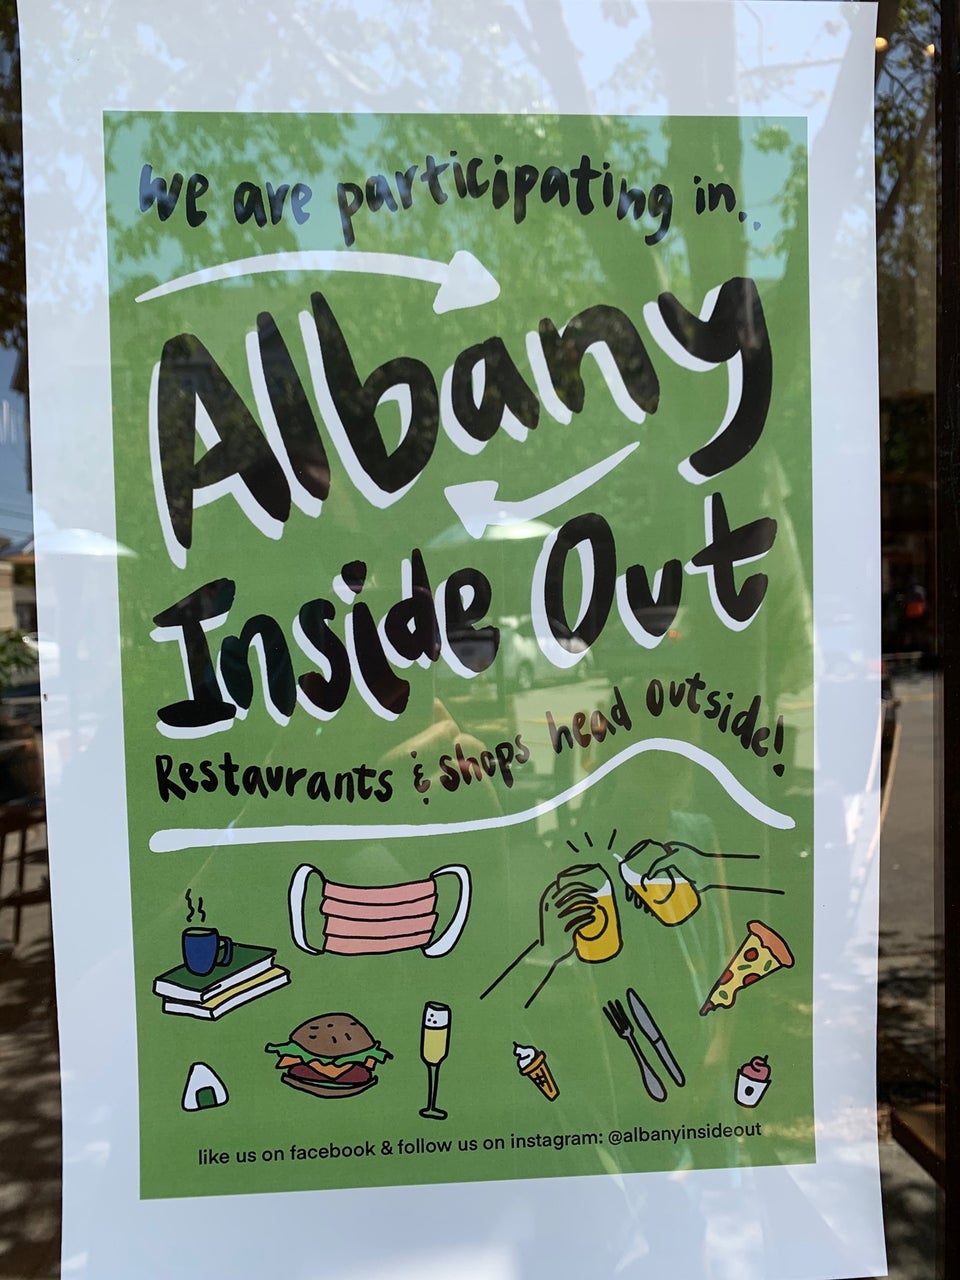 we are participating in..
Albany
Inside Out
Restaurants & shops head outside!
like us on facebook & follow us on instagram: @albanyinsideout